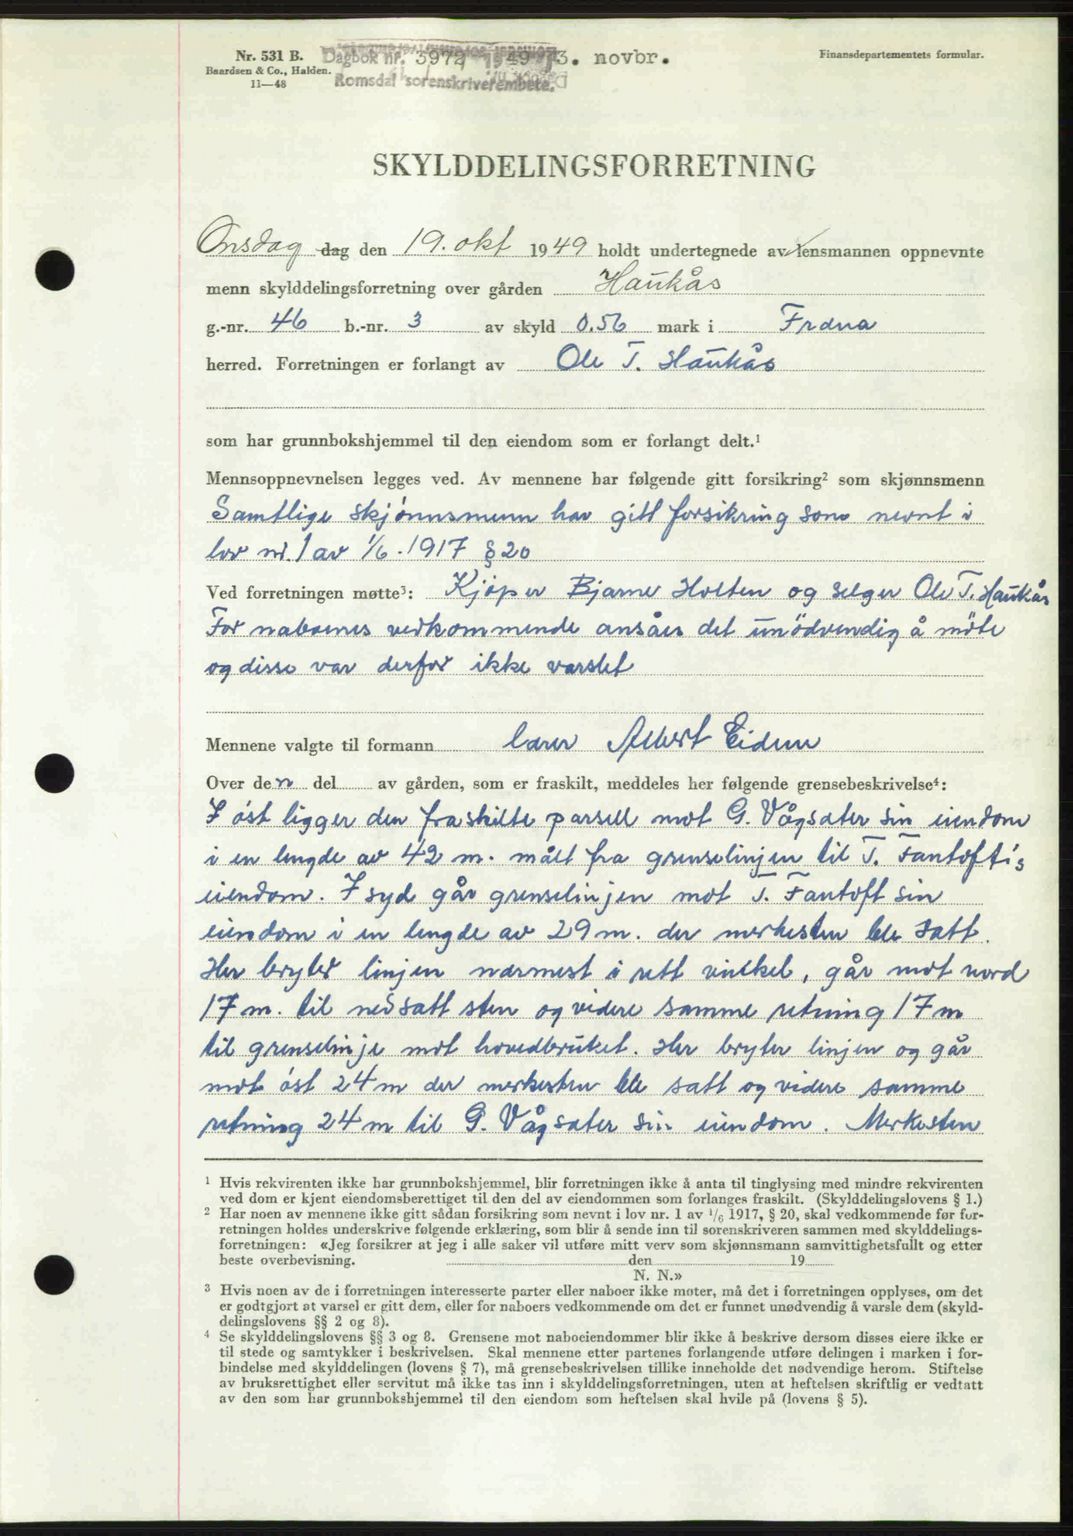 Nr. 531 B.
Baardsen & Co., Halden.
11—48
Dagbok nr. 3972 1949 3. novbr.
Romsdal sorenskriverembete.
Finansdepartementets formular.
SKYLDDELINGSFORRETNING
Onsdag dag den 19. okt 1949 holdt undertegnede av lensmannen oppnevnte
menn skylddelingsforretning over gården Haukås
g.-nr. 46 b.-nr. 3 av skyld 0.56 mark i Fræna
herred. Forretningen er forlangt av Ole T. Haukås
som har grunnbokshjemmel til den eiendom som er forlangt delt.¹
Mennsoppnevnelsen legges ved. Av mennene har følgende gitt forsikring² som skjønnsmenn
Samtlige skjönnsmenn har gitt forsikring som nevnt i
lov nr. 1 av 1/6. 1917 § 20
Ved forretningen møtte³: Kjöper Bjarne Holten og selger Ole T. Haukås
For naboenes vedkommende ansåes det unödvendig å möte
og disse var derfor ikke varslet
Mennene valgte til formann lærer Albert Eidem
Over den del av gården, som er fraskilt, meddeles her følgende grensebeskrivelse⁴:
I öst ligger den fraskilte parsell mot G. Vågsæter sin eiendom
i en lengde av 42 m. målt fra grenselinjen til T. Fantoft's
eiendom. I syd går grenselinjen mot T. Fantoft sin
eiendom i en lengde av 29 m. der merkesten ble satt.
Her bryter linjen nærmest i rett vinkel, går mot nord
17 m. til nedsatt sten og videre samme retning 17 m
til grenselinje mot hovedbruket. Her bryter linjen og går
mot öst 24 m der merkesten ble satt og videre samme
retning 24 m til G. Vågsæter sin eiendom. Merkesten
¹ Hvis rekvirenten ikke har grunnbokshjemmel, blir forretningen ikke å anta til tinglysing med mindre rekvirenten
ved dom er kjent eiendomsberettiget til den del av eiendommen som forlanges fraskilt. (Skylddelingslovens § 1.)
² Har noen av mennene ikke gitt sådan forsikring som nevnt i lov nr. 1 av 1/6 1917, § 20, skal vedkommende før for-
retningen holdes underskrive følgende erklæring, som blir å sende inn til sorenskriveren sammen med skylddelings-
forretningen: «Jeg forsikrer at jeg i alle saker vil utføre mitt verv som skjønnsmann samvittighetsfullt og etter
beste overbevisning. den 19
N. N.»
³ Hvis noen av de i forretningen interesserte parter eller naboer ikke møter, må det i forretningen opplyses, om det
er godtgjort at varsel er gitt dem, eller for naboers vedkommende om det er funnet unødvendig å varsle dem (skyld-
delingslovens §§ 2 og 8).
⁴ Se skylddelingslovens §§ 3 og 8. Grensene mot naboeiendommer blir ikke å beskrive dersom disses eiere ikke er
til stede og samtykker i beskrivelsen. Skal mennene etter partenes forlangende utføre delingen i marken i for-
bindelse med skylddelingen (lovens § 7), må grensebeskrivelsen tillike inneholde det nødvendige herom. Stiftelse
av bruksrettighet eller servitut må ikke tas inn i skylddelingsforretningen, uten at heftelsen skriftlig er vedtatt
av den som har grunnbokshjemmel til den eiendom som heftelsen skal hvile på (lovens § 5).